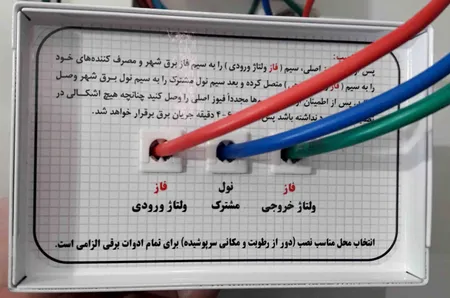 پس از اصلی، سیم ( فاز ولتاژ ورودی ) را به سیم فاز برق شهر و مصرف کننده‌های خود
را به سیم ( فاز ) متصل کرده و بعد سیم نول مشترک را به سیم نول برق شهر وصل
پس از اطمینان از مجددا فیوز اصلی را وصل کنید چنانچه هیچ اشکالی در
نداشته باشد پس ۴-۶ دقیقه جریان برق برقرار خواهد شد.
فاز نول فاز
ولتاژ خروجی مشترک ولتاژ ورودی
انتخاب محل مناسب نصب (دور از رطوبت و مکانی سرپوشیده) برای تمام ادوات برقی الزامی است.